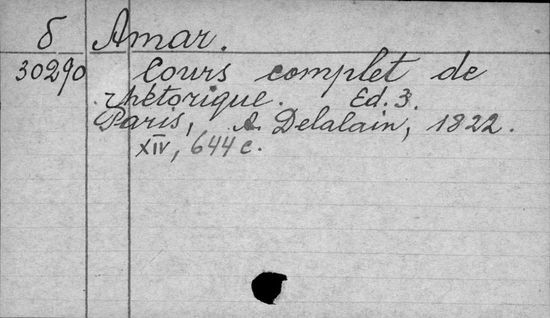 б Amar.
30290 Cours complet de
rhétorique. Ed. 3.
Paris, A. Delalain, 1822.
XIV, 644 c.